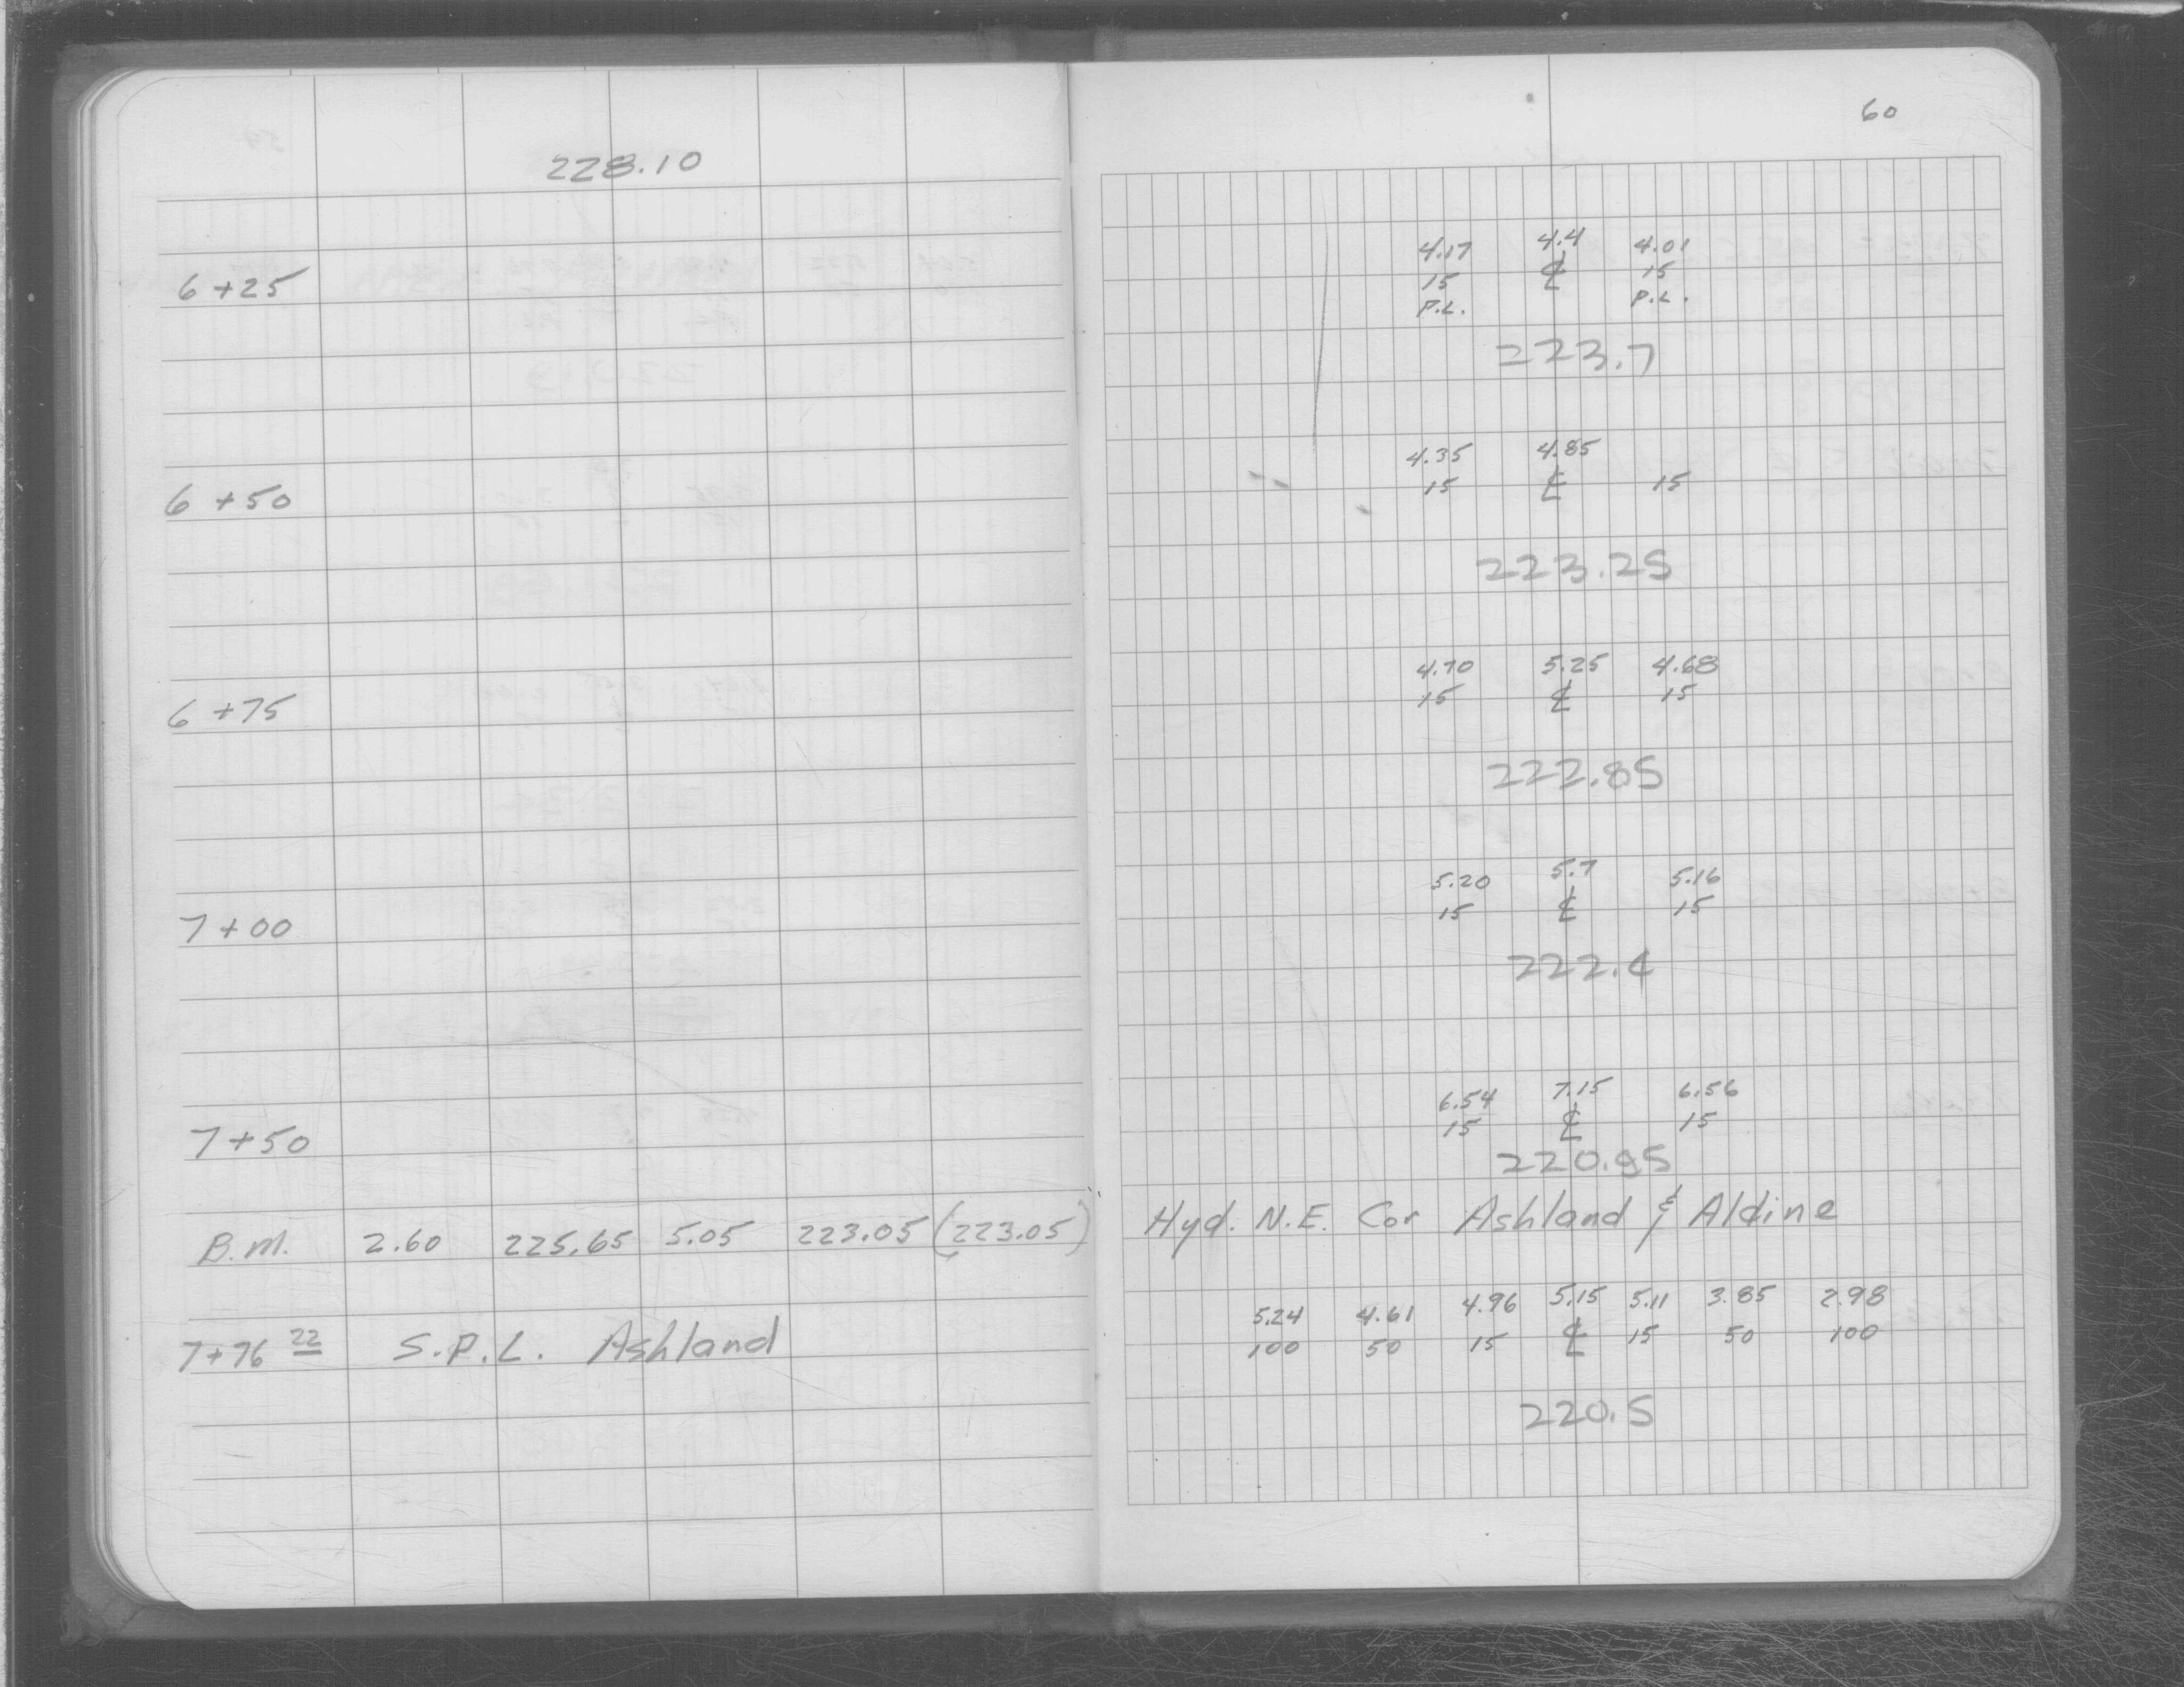 60
228.10
4.17 4.4 4.01
6+25 15 ℄ 15
P.L. P.L.
223.7
4.35 4.85
6+50 15 ℄ 15
223.25
4.70 5.25 4.68
6+75 15 ℄ 15
222.85
5.20 5.7 5.16
7+00 15 ℄ 15
222.4
6.54 7.15 6.56
7+50 15 ℄ 15
220.95
B.M. 2.60 225.65 5.05 223.05 (223.05) Hyd. N.E. Cor Ashland & Aldine
5.24 4.61 4.96 5.15 5.11 3.85 2.98
7+76 22 S.P.L. Ashland 100 50 15 ℄ 15 50 100
220.5